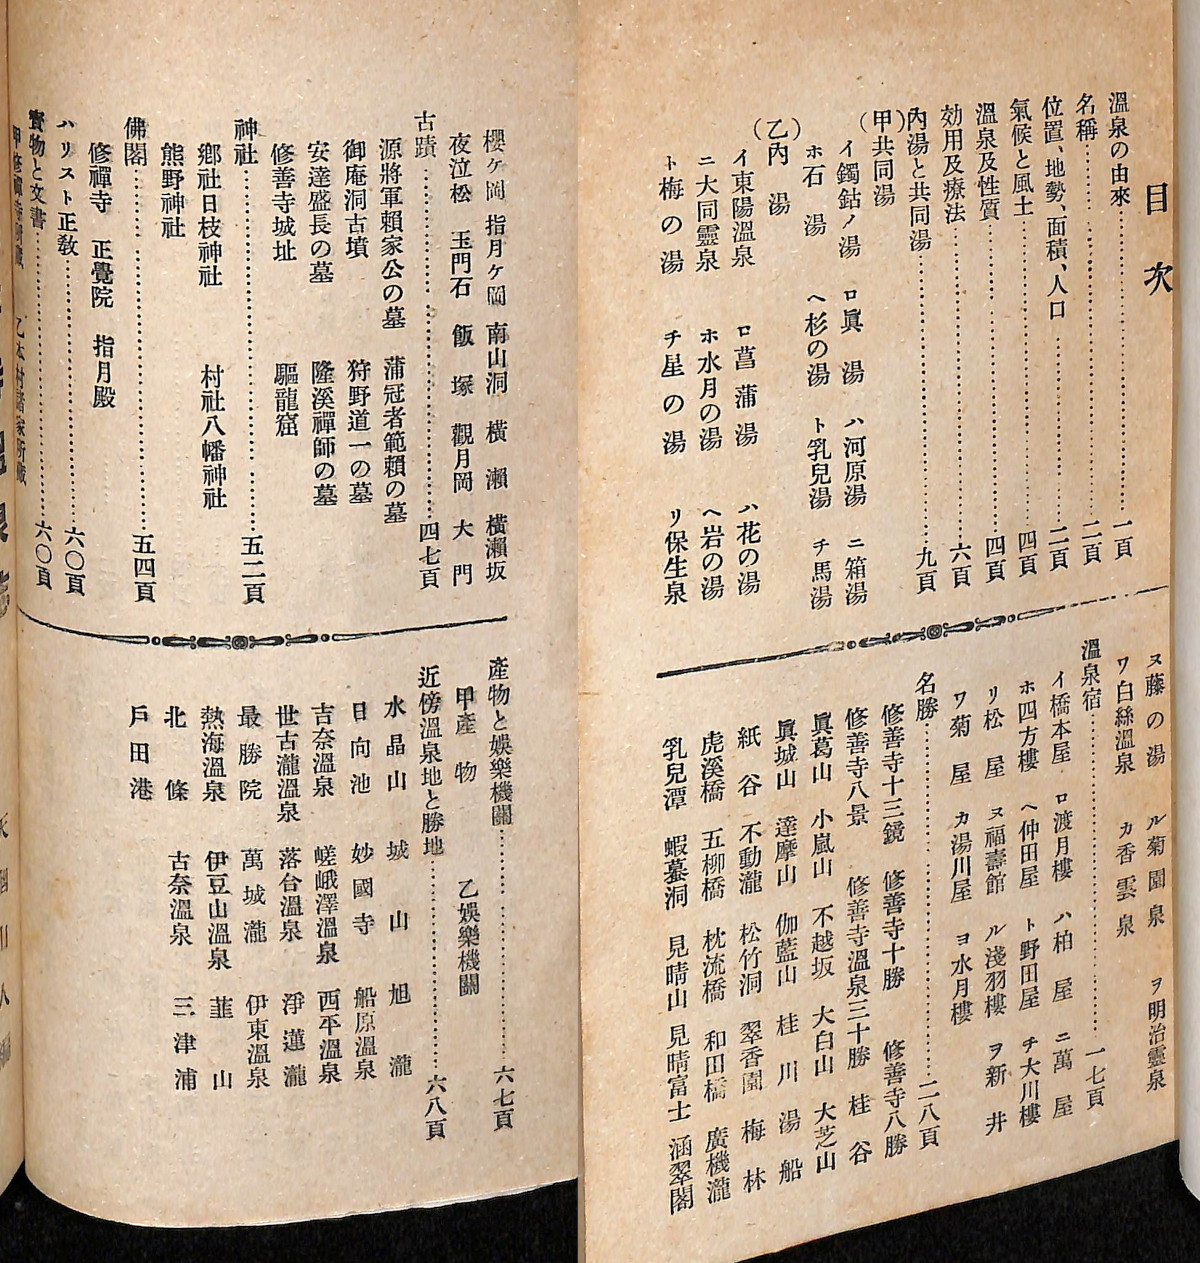 目次
溫泉の由來……一頁
名稱……二頁
位置、地勢、面積、人口……二頁
氣候と風土……四頁
溫泉及性質……四頁
効用及療法……六頁
內湯と共同湯……九頁
(甲)共同湯
イ獨鈷ノ湯 ロ眞湯 ハ河原湯 ニ箱湯
ホ石湯 ヘ杉の湯 ト乳兒湯 チ馬湯
(乙)內湯
イ東陽溫泉 ロ菖蒲湯 ハ花の湯
ニ大同靈泉 ホ水月の湯 ヘ岩の湯
ト梅の湯 チ星の湯 リ保生泉
ヌ藤の湯 ル菊園泉 ヲ明治靈泉
ワ白絲溫泉 カ香雲泉
溫泉宿……一七頁
イ橋本屋 ロ渡月樓 ハ柏屋 ニ萬屋
ホ四方樓 ヘ仲田屋 ト野田屋 チ大川樓
リ松屋 ヌ福壽館 ル淺羽樓 ヲ新井
ワ菊屋 カ湯川屋 ヨ水月樓
名勝……二八頁
修善寺十三鏡 修善寺十勝 修善寺八勝
修善寺八景 修善寺溫泉三十勝 桂谷
眞葛山 小嵐山 不越坂 大白山 大芝山
眞城山 達摩山 伽藍山 桂川 湯船
紙谷 不動瀧 松竹洞 翠香園 梅林
虎溪橋 五柳橋 枕流橋 和田橋 廣機瀧
乳兒潭 蝦蟇洞 見晴山 見晴富士 涵翠閣
櫻ケ岡 指月ケ岡 南山洞 橫瀨 橫瀨坂
夜泣松 玉門石 飯塚 觀月岡 大門
古蹟……四七頁
源將軍賴家公の墓 蒲冠者範賴の墓
御庵洞古墳 狩野道一の墓
安達盛長の墓 隆溪禪師の墓
修善寺城址 驅龍窟
神社……五二頁
鄕社日枝神社 村社八幡神社
熊野神社
佛閣……五四頁
修禪寺 正覺院 指月殿
ハリスト正敎……六〇頁
寶物と文書……六〇頁
產物と娛樂機關……六七頁
甲產物 乙娛樂機關
近傍溫泉地と勝地……六八頁
水晶山 城山 旭瀧
日向池 妙國寺 船原溫泉
吉奈溫泉 嵯峨澤溫泉 西平溫泉
世古瀧溫泉 落合溫泉 淨蓮瀧
最勝院 萬城瀧 伊東溫泉
熱海溫泉 伊豆山溫泉 韮山
北條 古奈溫泉 三津浦
戶田港